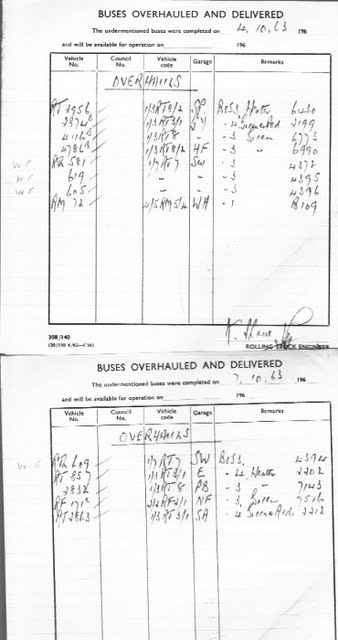 BUSES OVERHAULED AND DELIVERED
The undermentioned buses were completed on 4.10.63 196
and will be available for operation on 196
Vehicle No. Council No. Vehicle code Garage Remarks
OVERHAULS
RT 2956 1/3RT8/2 6430
2874 1/3RT3/1 - 4 2199
4116B 1/3RT8 - - 3 Screen 6773
4786B 1/3RT8/2 HF - 3 " 6990
wr 581 1/7RT7 SW - 3 4372
wr 619 - - - 3 4395
wr 605 - - - 3 4396
RM 72 4/5RM5/4 WH - 1 B109
308/140
ROLLING STOCK ENGINEER
BUSES OVERHAULED AND DELIVERED
The undermentioned buses were completed on 7.10.63 196
and will be available for operation on 196
Vehicle No. Council No. Vehicle code Garage Remarks
OVERHAULS
609 1/7RT7 SW 4394
RT 857 1/3RT3/1 E - 4 Heater 2202
2832 1/3RT8 PB - 3 " 7143
RF 171 2/2RF2/1 NF - 3 Screen 7516
RT 2863 1/3RT3/1 SA - 4 2212